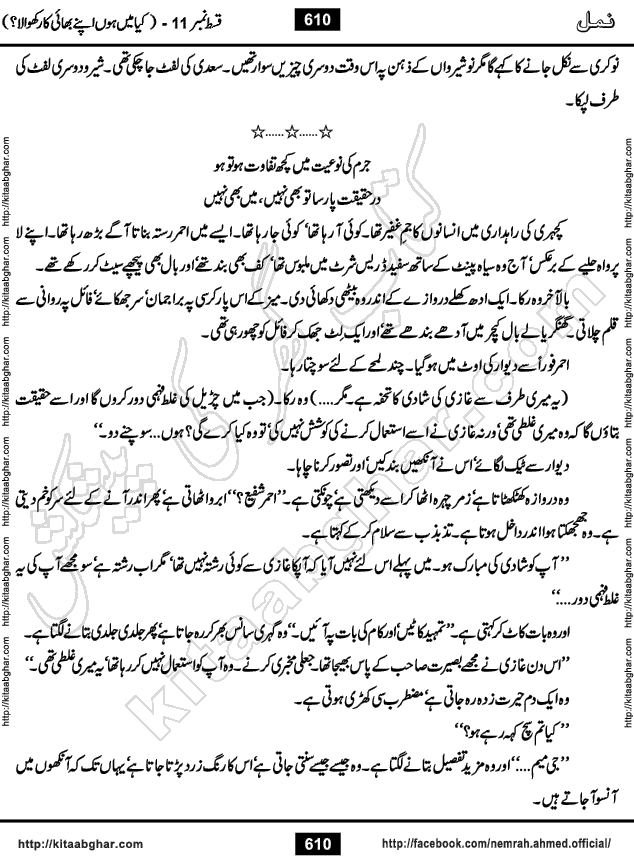 نمل 610 قسط نمبر 11 - ( کیا میں ہوں اپنے بھائی کا رکھوالا؟)
نوکری سے نکل جانے کا کہے گا مگر نوشیرواں کے ذہن پہ اس وقت دوسری چیزیں سوار تھیں۔ سعدی کی لفٹ جا چکی تھی۔ شیرو دوسری لفٹ کی
طرف لپکا۔
☆......☆......☆
جرم کی نوعیت میں کچھ تفاوت ہو تو ہو
درحقیقت پارسا تو بھی نہیں، میں بھی نہیں
کچہری کی راہداری میں انسانوں کا جم غفیر تھا۔ کوئی آ رہا تھا' کوئی جا رہا تھا۔ ایسے میں احمر رستہ بناتا آگے بڑھ رہا تھا۔ اپنے لا
پرواہ حلیے کے برعکس' آج وہ سیاہ پینٹ کے ساتھ سفید ڈریس شرٹ میں ملبوس تھا' کف بھی بند تھے اور بال بھی پیچھے سیٹ کر رکھے تھے۔
بالآخر وہ رکا۔ ایک ادھ کھلے دروازے کے اندر وہ بیٹھی دکھائی دی۔ میز کے اس پار کرسی پہ براجمان' سر جھکائے' فائل پہ روانی سے
قلم چلاتی۔ گھنگریالے بال کیچر میں آدھے بندھے تھے' اور ایک لٹ جھک کر فائل کو چھو رہی تھی۔
احمر فوراً سے دیوار کی اوٹ میں ہو گیا۔ چند لمحے کے لئے سوچتا رہا۔
(یہ میری طرف سے غازی کی شادی کا تحفہ ہے۔ مگر....) وہ رکا۔ (جب میں چڑیل کی غلط فہمی دور کروں گا اور اسے حقیقت
بتاؤں گا کہ وہ میری غلطی تھی' ورنہ غازی نے اسے استعمال کرنے کی کوشش نہیں کی' تو وہ کیا کرے گی؟ ہوں... سوچنے دو۔"
دیوار سے ٹیک لگائے' اس نے آنکھیں بند کیں' اور تصور کرنا چاہا۔
وہ دروازہ کھٹکھٹاتا ہے' زمر چہرہ اٹھا کر اسے دیکھتی ہے' چونکتی ہے۔ "احمر شفیع؟" ابرو اٹھاتی ہے' پھر اندر آنے کے لئے سر کو خم دیتی
ہے۔ وہ جھجھکتا ہوا اندر داخل ہوتا ہے۔ تذبذب سے سلام کر کے کہتا ہے۔
"آپ کو شادی کی مبارک ہو۔ میں پہلے اس لئے نہیں آیا کہ آپکا غازی سے کوئی رشتہ نہیں تھا' مگر اب رشتہ ہے' سو مجھے آپ کی یہ
غلط فہمی دور...."
اور وہ بات کاٹ کر کہتی ہے۔ "تمہید کاٹیں' اور کام کی بات پہ آئیں۔" وہ گہری سانس بھر کر رہ جاتا ہے' پھر جلدی جلدی بتانے لگتا ہے۔
"اس دن غازی نے مجھے بصیرت صاحب کے پاس بھیجا تھا۔ جعلی مخبری کرنے۔ وہ آپ کو استعمال نہیں کر رہا تھا' یہ میری غلطی تھی۔"
وہ ایک دم حیرت زدہ رہ جاتی ہے' مضطرب سی کھڑی ہوتی ہے۔
"کیا تم سچ کہہ رہے ہو؟"
"جی میم...." اور وہ مزید تفصیل بتانے لگتا ہے۔ وہ جیسے جیسے سنتی جاتی ہے' اس کا رنگ زرد پڑتا جاتا ہے' یہاں تک کہ آنکھوں میں
آنسو آ جاتے ہیں۔
کتاب گھر کی پیشکش
kitaabghar.com
http://kitaabghar.com http://kitaabghar.com http://kitaabghar.com http://kitaabghar.com http://kitaabghar.com http://kitaabghar.com
http://kitaabghar.com http://kitaabghar.com http://kitaabghar.com http://kitaabghar.com http://kitaabghar.com http://kitaabghar.com
http://kitaabghar.com 610 http://facebook.com/nemrah.ahmed.official/